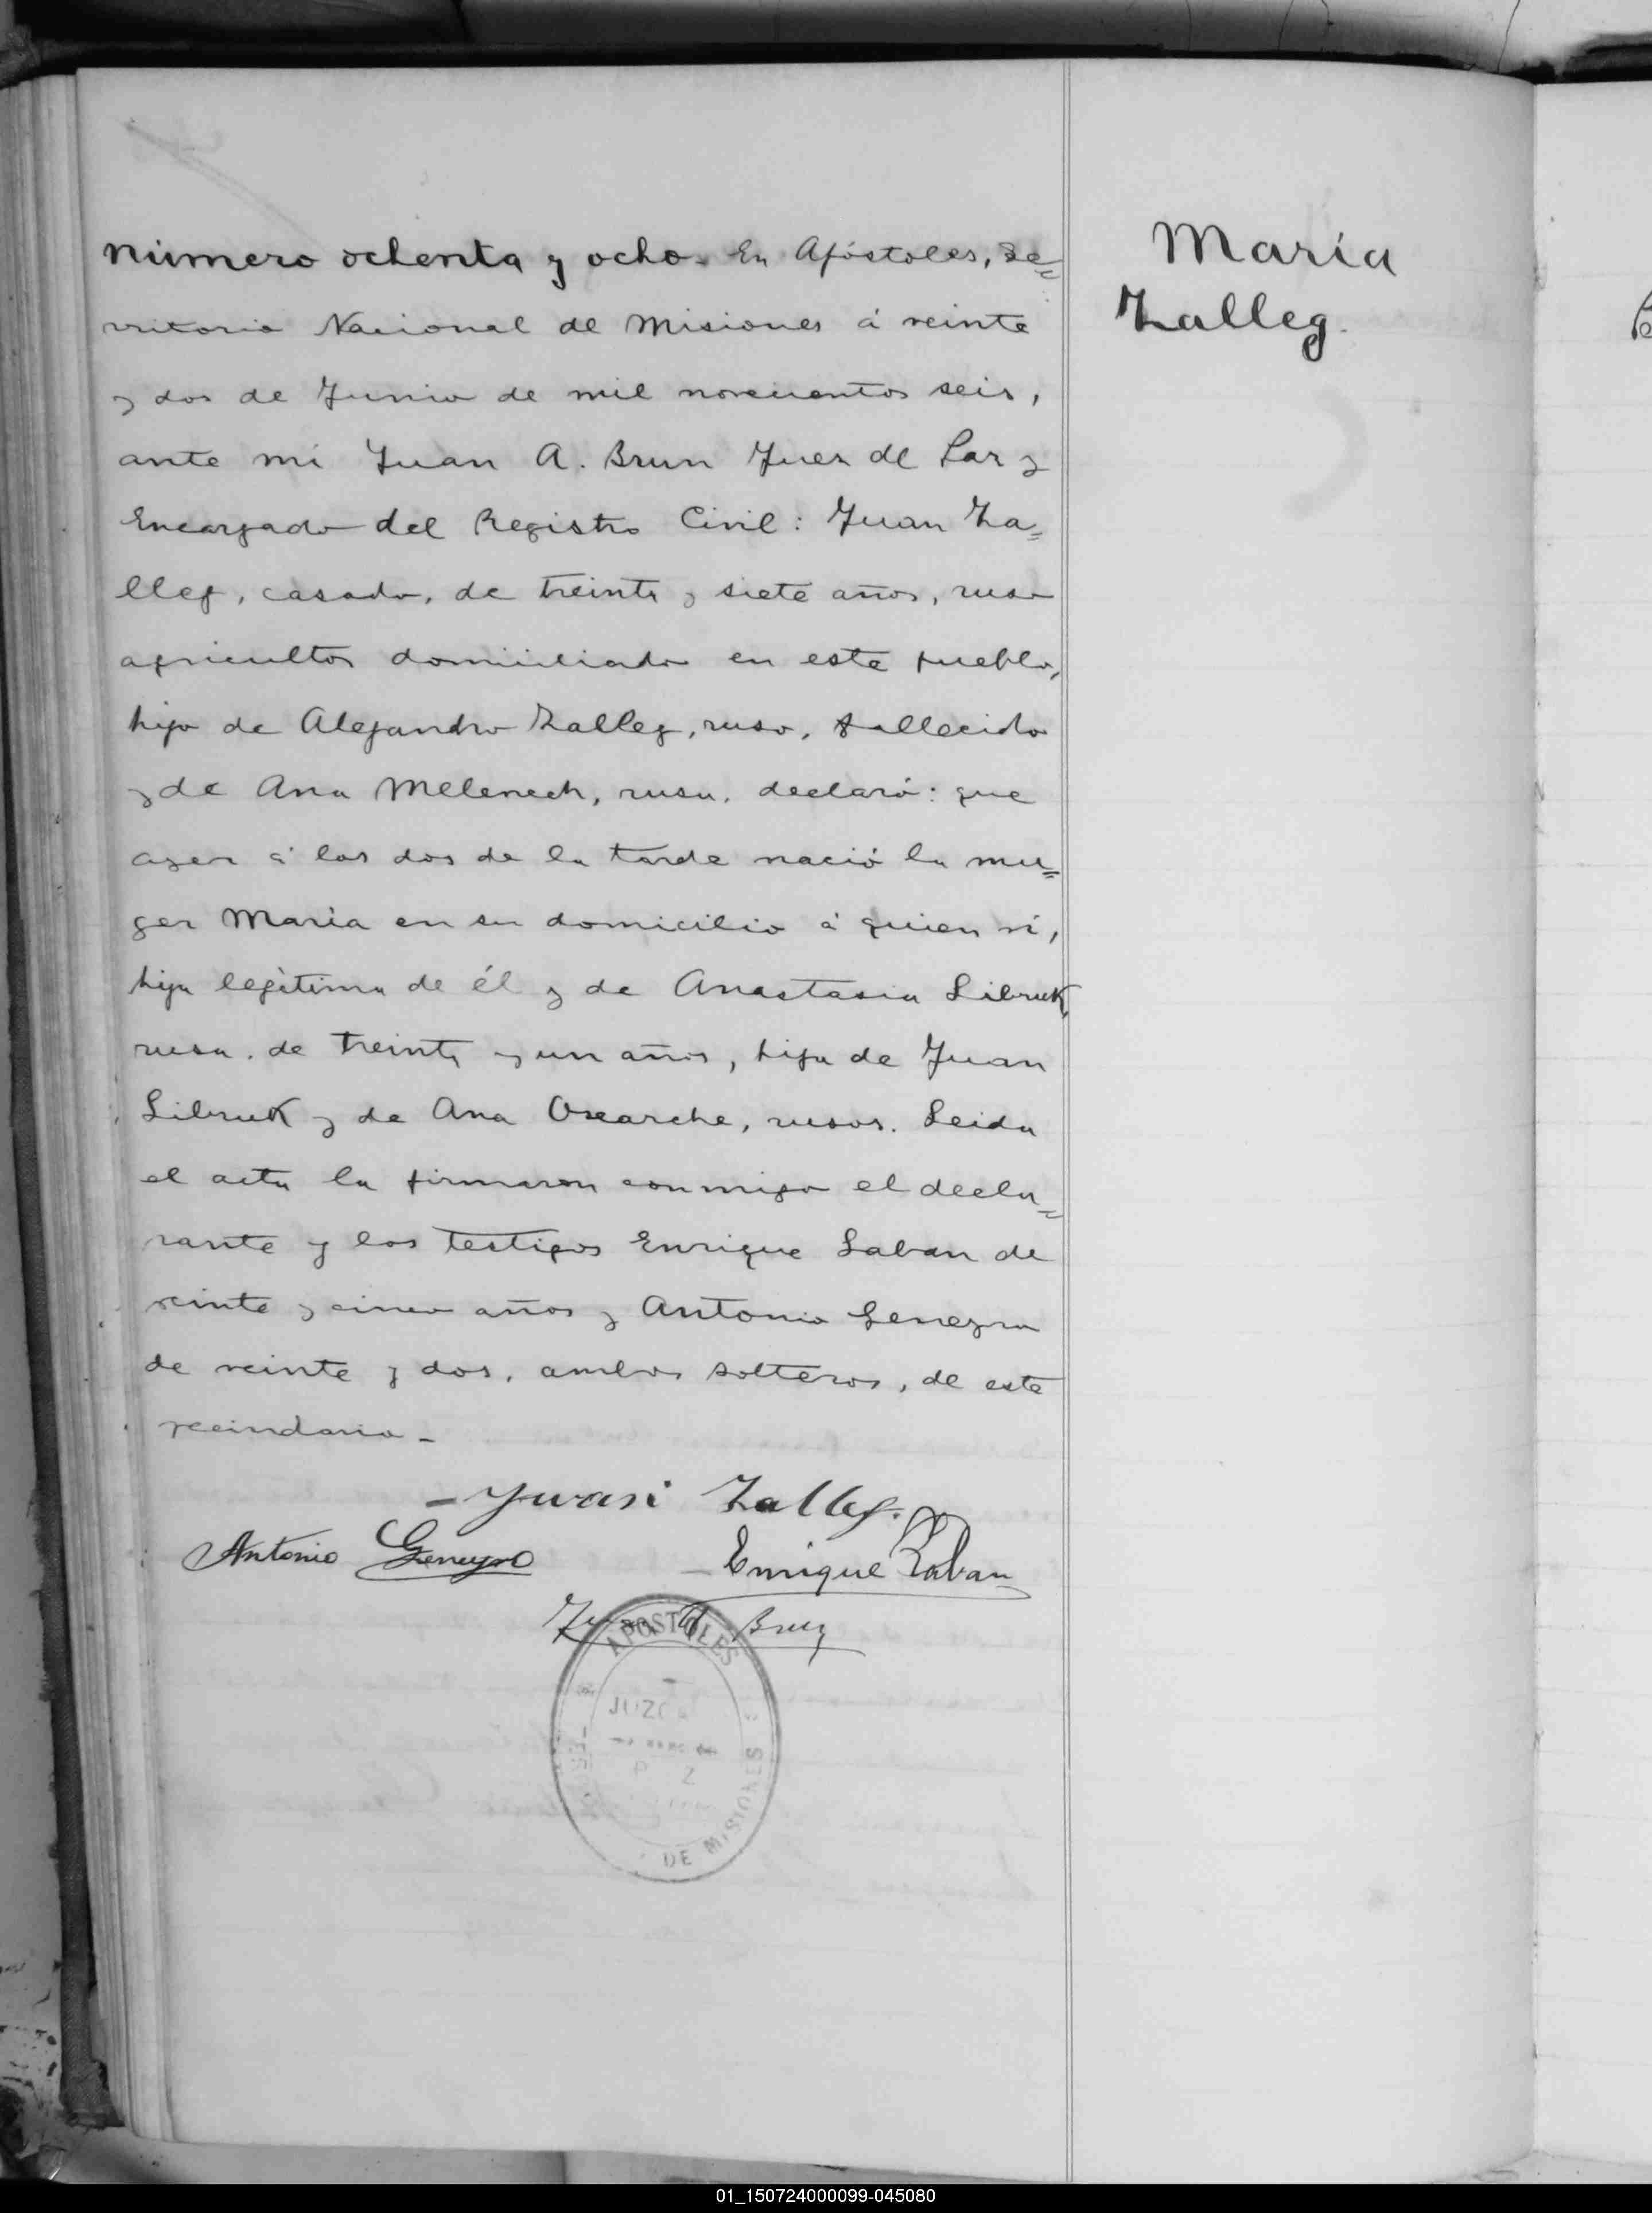 Número ochenta y ocho. En Apóstoles, Te=
rritorio Nacional de Misiones á veinte
y dos de Junio de mil novecientos seis,
ante mi Juan A. Brun Juez de Paz y
Encargado del Registro Civil: Juan Za=
lleg, casado, de treinta y siete años, ruso
agricultor domiciliado en este pueblo,
hijo de Alejandro Zalleg, ruso, fallecido
y de Ana Melenech, rusa, declaró: que
ayer á las dos de la tarde nació la mu=
ger Maria en su domicilio á quien ví,
hija legítima de él y de Anastasia Libruk,
rusa, de treinta y un años, hija de Juan
Libruk y de Ana Oscarche, rusos. Leida
el acta la firmaron conmigo el decla=
rante y los testigos Enrique Laban de
veinte y cinco años y Antonio Geneyro
de veinte y dos, ambos solteros, de este
vecindario -
María
Zalleg.
Zalleg.
Antonio Geneyro
Enrique Laban
Juan A. Brun
APOSTOLES
JUZG
P Z
DE MISIONES
01_150724000099-045080